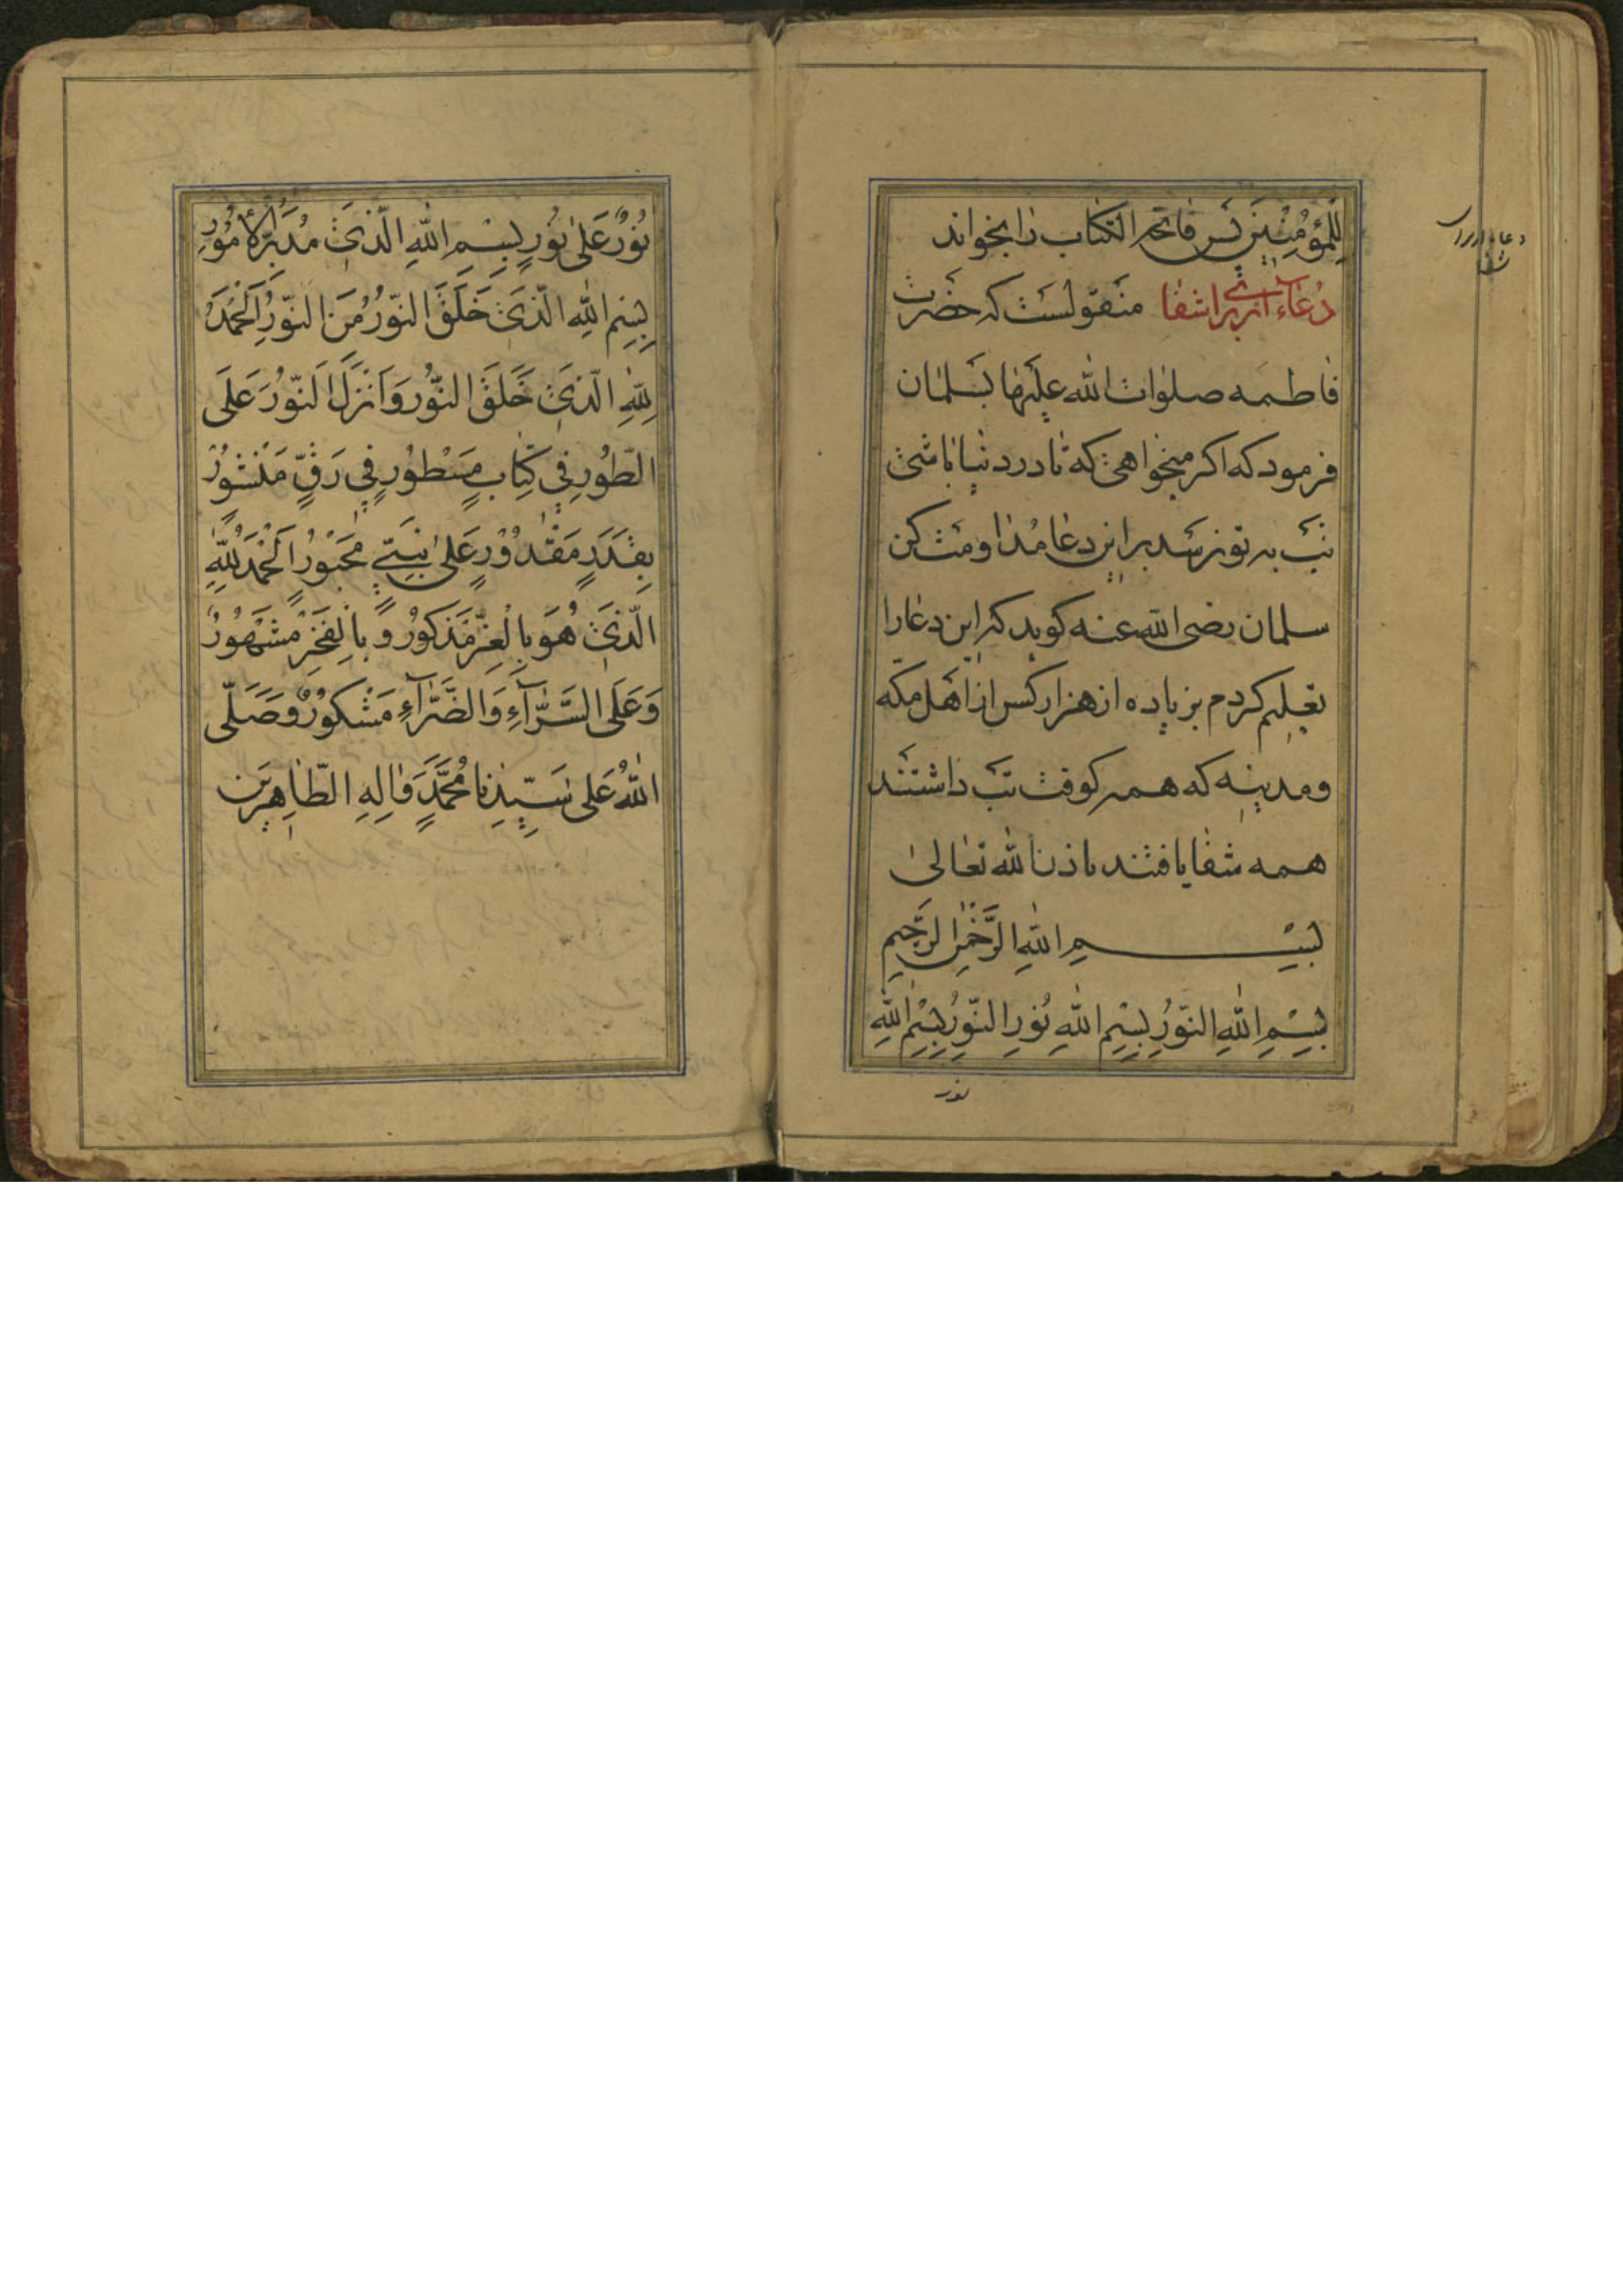 لِلْمُؤْمِنِينَ پس فاتحه الکتاب را بخواند
دُعاء از برا شفا منقولست که حضرت
فاطمه صلوات الله علیها بسلمان
فرمود که اکر میخواهی که تا در دنیا باشی
تب به تو نرسد بر این دعا مداومت کن
سلمان رضی الله عنه کوید که این دعا را
تعلیم کردم بزیاده از هزار کس از اهل مکه
ومدینه که همه کوفت تب داشتند
همه شفا یافتند باذن الله تعالی
بِسْمِ اللهِ الرَّحْمٰنِ الرَّحِيمِ
بِسْمِ اللهِ النّورِ بِسْمِ اللهِ نُورِ النّورِ بِسْمِ اللهِ
نور
نُورٌ عَلىٰ نُورٍ بِسْمِ اللهِ الَّذى مُدَبِّرُ الأُمُورِ
بِسْمِ اللهِ الَّذى خَلَقَ النّورَ مِنَ النّورِ اَلْحَمْدُ
لِلّٰهِ الَّذى خَلَقَ النّورَ وَاَنْزَلَ النّورَ عَلَى
الطّورِ فى كِتابٍ مَسْطُورٍ فى رَقٍّ مَنْشُورٍ
بِقَدَرٍ مَقْدُورٍ عَلىٰ نَبِىٍّ مَحْبُورٍ اَلْحَمْدُ لِلّٰهِ
الَّذى هُوَ بِالْعِزِّ مَذْكُورٌ وَ بِالْفَخْرِ مَشْهُورٌ
وَعَلَى السَّرّآءِ وَالضَّرّآءِ مَشْكُورٌ وَصَلَّى
اللهُ عَلى سَيِّدِنا مُحَمَّدٍ وَاٰلِهِ الطّاهِرينَ